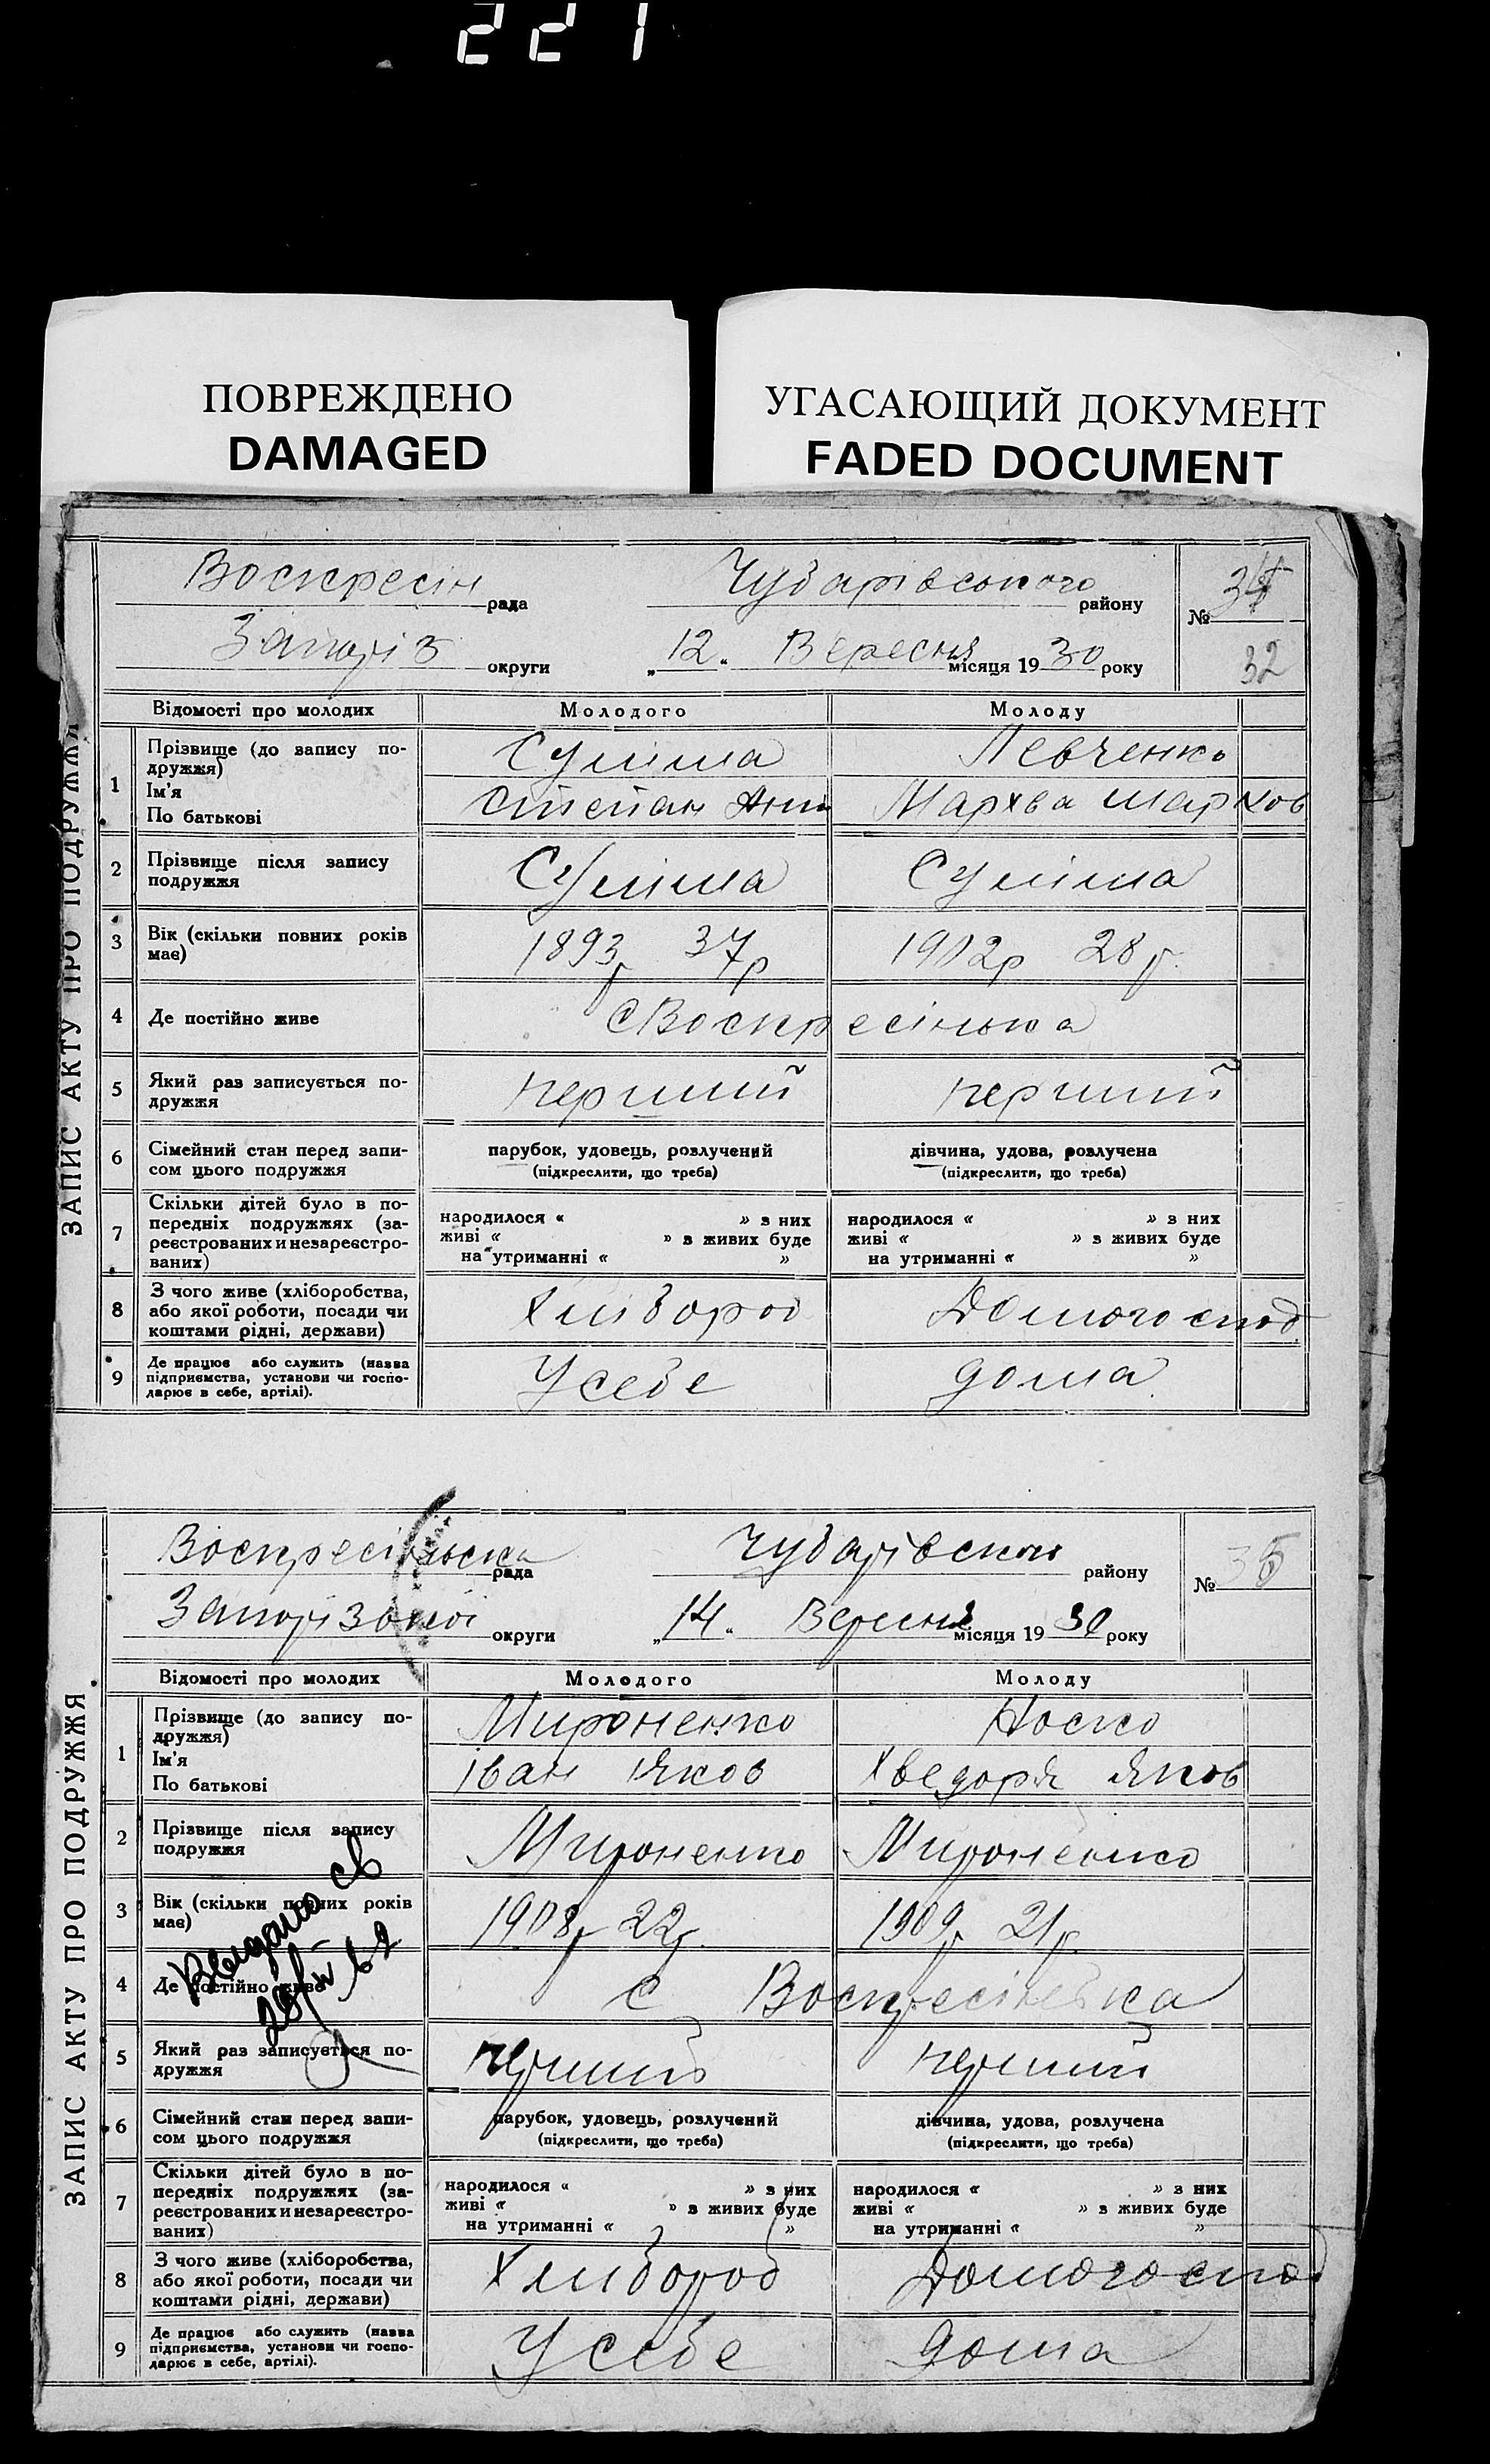 221
ПОВРЕЖДЕНО
DAMAGED
УГАСАЮЩИЙ ДОКУМЕНТ
FADED DOCUMENT
ЗАПИС АКТУ ПРО ПОДРУЖЖЯ
Воскресін рада Чубарівського району №
Запоріз округи „12" Вересня місяця 1930 року 32
Відомості про молодих Молодого Молоду
1 Прізвище (до запису по- Суліма Левченко
дружжя)
Ім'я Степан Мархва Марков
По батькові
2 Прізвище після запису Суліма Суліма
подружжя
3 Вік (скільки повних років 1893р 37р 1902р 28р.
має)
4 Де постійно живе с Воскресінька
5 Який раз записується по- перший перший
дружжя
6 Сімейний стан перед запи- парубок, удовець, розлучений дівчина, удова, розлучена
сом цього подружжя (підкреслити, що треба) (підкреслити, що треба)
7 Скільки дітей було в по-
передніх подружжях (за- народилося « » з них народилося « » з них
реєстрованих и незареєстро- живі « » з живих буде живі « » з живих буде
ваних) на утриманні « » на утриманні « »
8 З чого живе (хліборобства,
або якої роботи, посади чи Хлібороб Домогоспод
коштами рідні, держави)
9 Де працює або служить (назва
підприємства, установи чи госпо- У себе дома
дарює в себе, артілі).
ЗАПИС АКТУ ПРО ПОДРУЖЖЯ
Воскресінська рада Чубарівскои району №
Запорізокоі округи „14" Вересня місяця 1930 року
Відомості про молодих Молодого Молоду
1 Прізвище (до запису по- Мироненко Носко
дружжя)
Ім'я Іван Яков Хведоря Яков
По батькові
2 Прізвище після запису Мироненко Мироненко
подружжя
3 Вік (скільки повних років 1908р 22р. 1909р 21р.
має)
4 Де постійно живе с Воскресінька
5 Який раз записується по- перший перший
дружжя
6 Сімейний стан перед запи- парубок, удовець, розлучений дівчина, удова, розлучена
сом цього подружжя (підкреслити, що треба) (підкреслити, що треба)
7 Скільки дітей було в по-
передніх подружжях (за- народилося « » з них народилося « » з них
реєстрованих и незареєстро- живі « » з живих буде живі « » з живих буде
ваних) на утриманні « » на утриманні « »
8 З чого живе (хліборобства,
або якої роботи, посади чи Хлибороб Домогоспод
коштами рідні, держави)
9 Де працює або служить (назва
підприємства, установи чи госпо- У себе дома
дарює в себе, артілі).